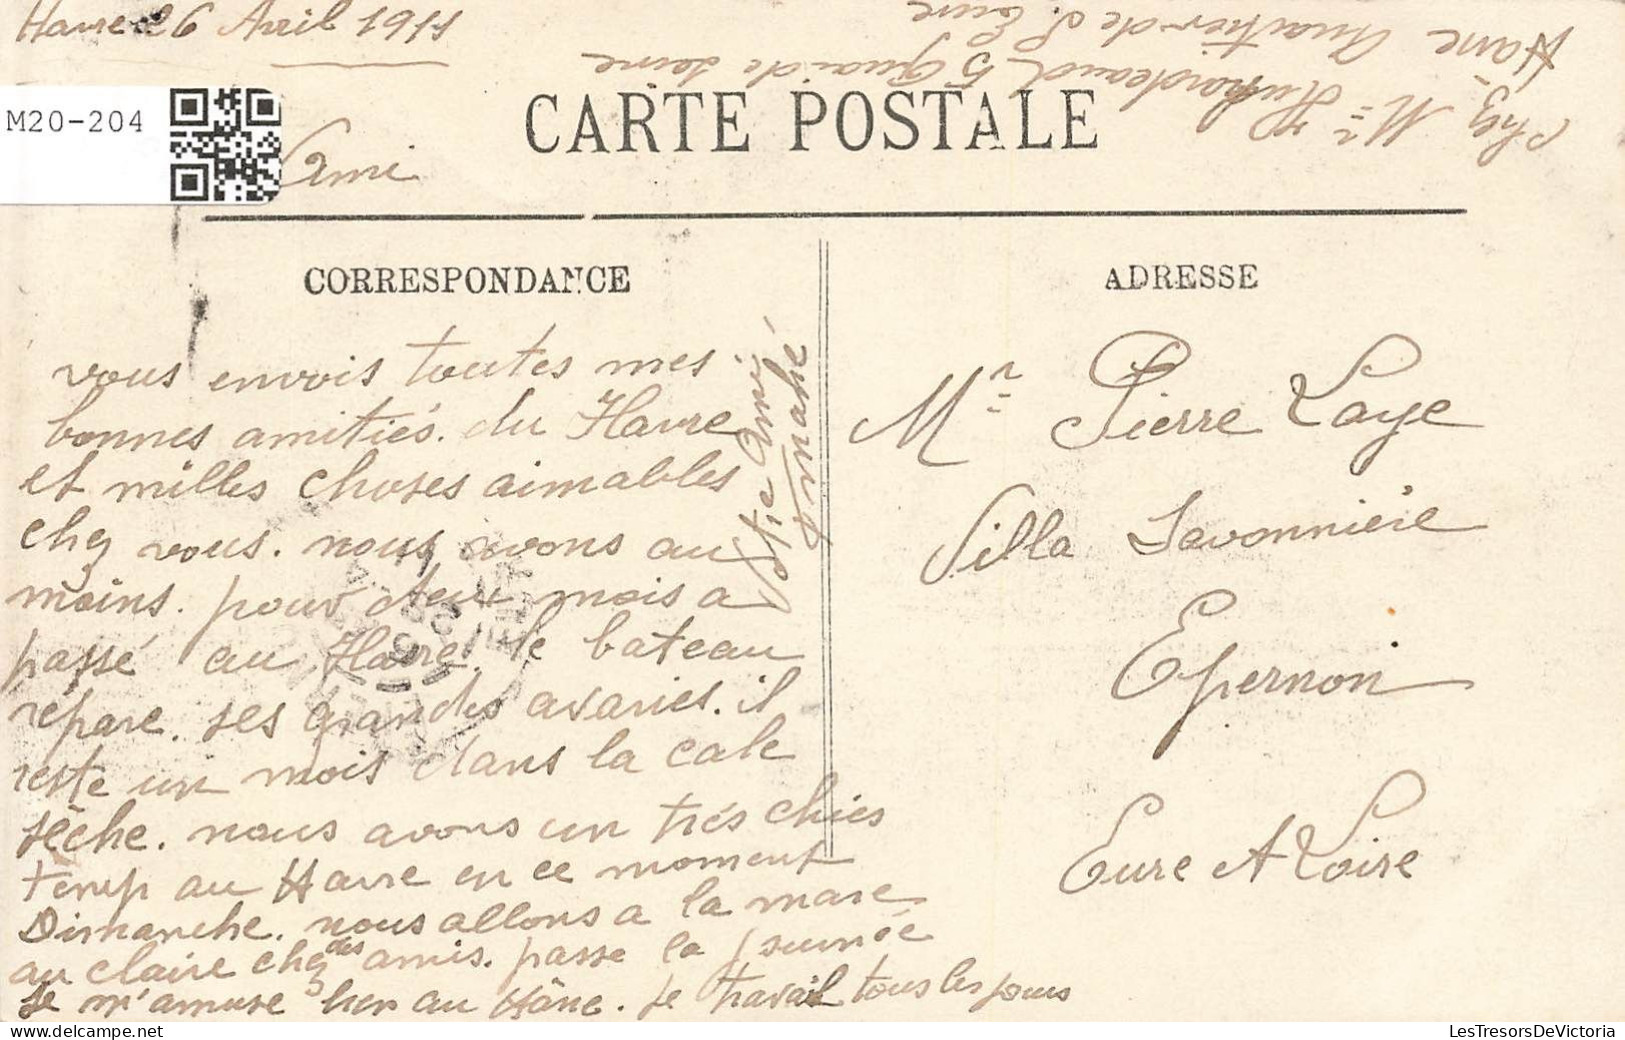 Havre 26 Avril 1911
Chez Mr Humarteaud 5 Quai de Seine
Havre Quartier de St Eure
M20-204
Ami
CARTE POSTALE
CORRESPONDANCE
vous envois toutes mes
bonnes amitiés. du Havre
et milles choses aimables
chez vous. nous avons au
moins. pour deux mois a
passé au Havre. le bateau
répare. ses grandes avaries. il
reste un mois dans la cale
sèche. nous avons un trés chies
temp au Havre en ce moment
Dimanche. nous allons a la mare
au claire chez des amis. passe la journée
Je m'amuse bien au Hâvre. je travail tous les jours
votre ami
mahé
ADRESSE
Mr Pierre Laye
Villa Savonnière
Epernon
Eure et Loire
LesTresorsDeVictoria